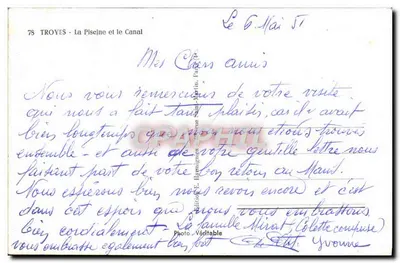 78 TROYES - La Piscine et le Canal
Le 6 Mai 51
Mes Chers amis
Nous vous remercions de votre visite
qui nous a fait tant plaisir, car il y avait
bien longtemps que nous nous étions trouvés
ensemble - et aussi de votre gentille lettre nous
faisient part de votre bon retour au Mans.
Nous espérons bien nous revoir encore et c'est
dans cet espoir que nous vous embrassons
bien cordialement. La famille (Colette compuse)
vous embrasse également bien fort Yvonne
Photo Véritable